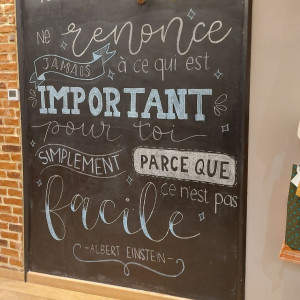 ne renonce
JAMAIS à ce qui est
IMPORTANT
pour toi
SIMPLEMENT PARCE QUE
ce n'est pas
facile
-ALBERT EINSTEIN-